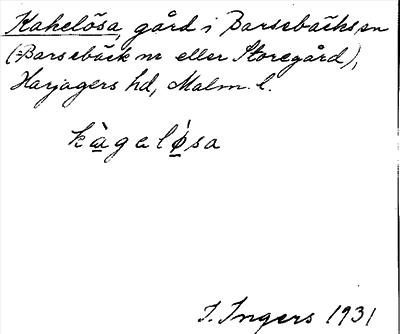 Kakelösa, gård i Barsebäcks sn
(=Barsebäck nr eller Storegård),
Harjagers hd, Malm. l.
kàgelǿsa
I. Ingers 1931